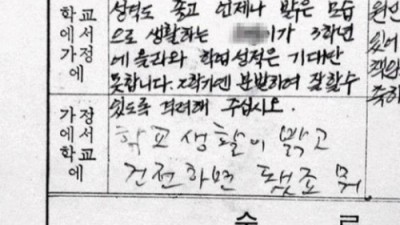 학교에서 가정에
성적도 좋고 언제나 밝은 모습
으로 생활하는 이가 3학년
에 올라와 학업성적은 기대만
못합니다. 2학기엔 분발하여 잘할수
있도록 격려해 주십시오.
가정에서 학교에
학교생활이 밝고
건전하면 됐죠 뭐
수 료
원만
있어
책임